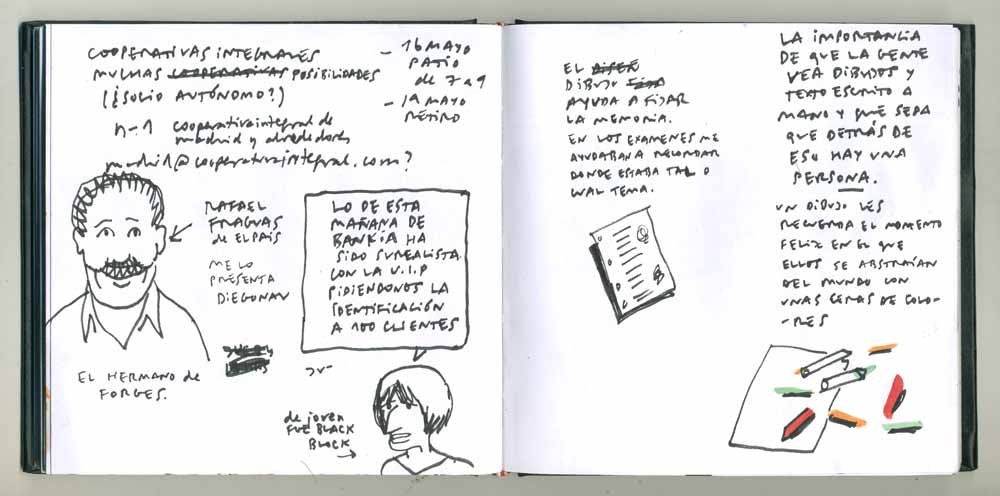 COOPERATIVAS INTEGRALES
MUCHAS COOPERATIVAS POSIBILIDADES
(¿SOCIO AUTÓNOMO?)
n-1 cooperativaintegral de
madrid y alrededores
madrid@cooperativaintegral.com?
- 16 MAYO
PATIO
de 7 a 9
- 19 MAYO
RETIRO
RAFAEL
FRAGUAS
de EL PAÍS
ME LO
PRESENTA
DIEGONAV
EL HERMANO de
FORGES.
LO DE ESTA
MAÑANA DE
BANKIA HA
SIDO SUREALISTA
CON LA U.I.P
PIDIENDONOS LA
IDENTIFICACIÓN
A 100 CLIENTES
de joven
FUE BLACK
BLOCK
EL
DIBUJO
AYUDA A FIJAR
LA MEMORIA.
EN LOS EXAMENES ME
AYUDABAN A RECORDAR
DONDE ESTABA TAL O
CUAL TEMA.
LA IMPORTANCIA
DE QUE LA GENTE
VEA DIBUJOS Y
TEXTO ESCRITO A
MANO Y QUE SEPA
QUE DETRÁS DE
ESO HAY UNA
PERSONA.
UN DIBUJO LES
RECUERDA EL MOMENTO
FELIZ EN EL QUE
ELLOS SE ABSTRAÍAN
DEL MUNDO CON
UNAS CERAS DE COLO-
-RES